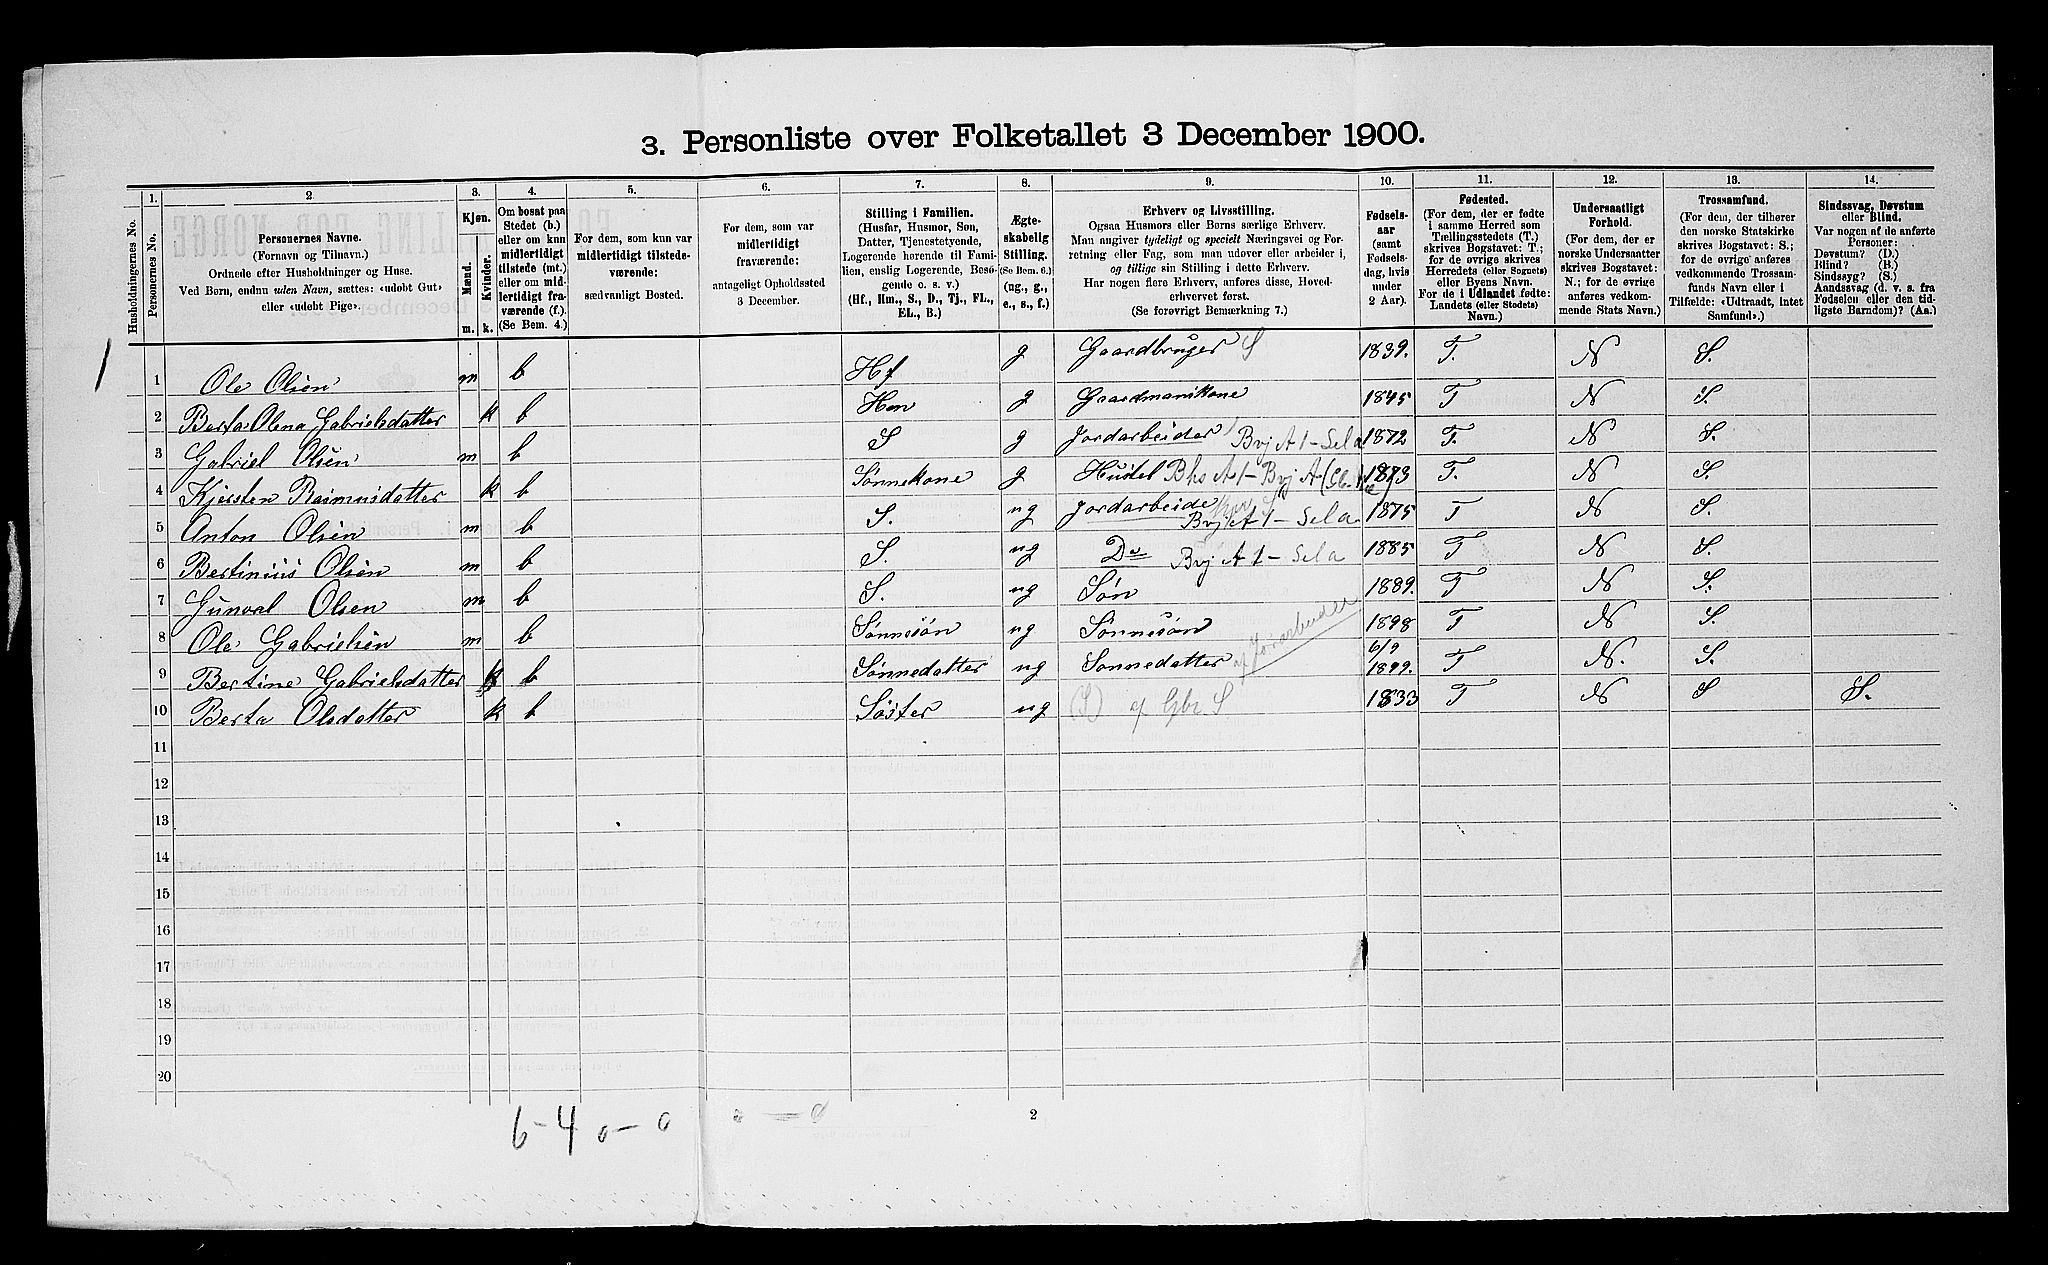 3. Personliste over Folketallet 3 December 1900.
1. 2. 3. 4. 5. 6. 7. 8. 9. 10. 11. 12. 13. 14.
Husholdningernes No.
Personernes No.
Personernes Navne.
(Fornavn og Tilnavn.)
Ordnede efter Husholdninger og Huse.
Ved Børn, endnu uden Navn, sættes: «udøbt Gut»
eller «udøbt Pige».
Kjøn.
Mænd.
Kvinder.
m. k.
Om bosat paa
Stedet (b.)
eller om kun
midlertidigt
tilstede (mt.)
eller om mid-
lertidigt fra-
værende (f.)
(Se Bem. 4.)
For dem, som kun var
midlertidigt tilstede-
værende:
sædvanligt Bosted.
For dem, som var
midlertidigt
fraværende:
antageligt Opholdssted
3 December.
Stilling i Familien.
(Husfar, Husmor, Søn,
Datter, Tjenestetyende,
Logerende hørende til Fami-
lien, enslig Logerende, Besø-
gende o. s. v.)
(Hf., Hm., S., D., Tj., FL.,
EL., B.)
Ægte-
skabelig
Stilling.
(Se Bem. 6.)
(ug., g.,
e., s., f.)
Erhverv og Livsstilling.
Ogsaa Husmors eller Børns særlige Erhverv.
Man angiver tydeligt og specielt Næringsvei og For-
retning eller Fag, som man udøver eller arbeider i,
og tillige sin Stilling i dette Erhverv.
Har nogen flere Erhverv, anføres disse, Hoved-
erhvervet først.
(Se forøvrigt Bemærkning 7.)
Fødsels-
aar
(samt
Fødsels-
dag, hvis
under
2 Aar).
Fødested.
(For dem, der er fødte
i samme Herred som
Tællingsstedets (T.)
skrives Bogstavet: T.;
for de øvrige skrives
Herredets (eller Sognets)
eller Byens Navn.
For de i Udlandet fødte:
Landets (eller Stedets)
Navn.)
Undersaatligt
Forhold.
(For dem, der er
norske Undersaatter
skrives Bogstavet:
N.; for de øvrige
anføres vedkom-
mende Stats Navn.)
Trossamfund.
(For dem, der tilhører
den norske Statskirke
skrives Bogstavet: S.;
for de øvrige anføres
vedkommende Trossam-
funds Navn eller i
Tilfælde: «Udtraadt, intet
Samfund».)
Sindssvag, Døvstum
eller Blind.
Var nogen af de anførte
Personer:
Døvstum? (D.)
Blind? (B.)
Sindssyg? (S.)
Aandssvag (d. v. s. fra
Fødselen eller den tid-
ligste Barndom)? (Aa.)
1 1 Ole Olsen m b Hf g Gaardbruger S 1839. T. N S.
2 Berta Olena Gabrielsdatter k b Hm g Gaardmanskone 1845 T N S.
3 Gabriel Olsen m b S g Jordarbeider Bvj A 1 - Sela 1872 T. N S.
4 Kjersten Rasmusdatter k b Sønnekone g Hustel Bhs A 1 - Bvj A 1873 T. N S.
5 Anton Olsen m b S. ug Jordarbeide Bvj A 1 - Sela 1875 T N S.
6 Bertinius Olsen m b S. ug Do Bvj A 1 - Sela 1885 T N S.
7 Gunval Olsen m b S. ug Søn 1889. T N S.
8 Ole Gabrielsen m b Sønnesøn ug Sønnesøn 1898 T N S.
9 Bertine Gabrielsdatter k b Sønnedatter ug Sønnedatter af Jorarbeider 6/9 1899. T N. S.
10 Berta Olsdatter k b Søster ug (S) af Gbr S 1833 T N S S.
11
12
13
14
15
16
17
18
19
20
6-4 0-0 0 — 0
2